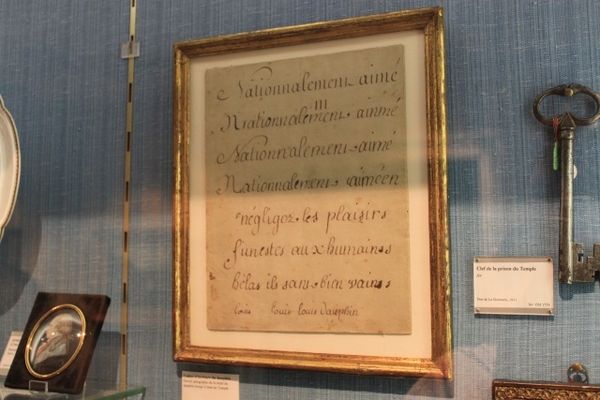 Nationnalement aimé
m
Nationnalement ainmé
Nationvalement aimé
Nationnalement aiméen
négligoz les plaisirs
funestes aux humains
hélas ils sans bien vains
louis louis louis Dauphin
Clef de la prison du Temple
fer